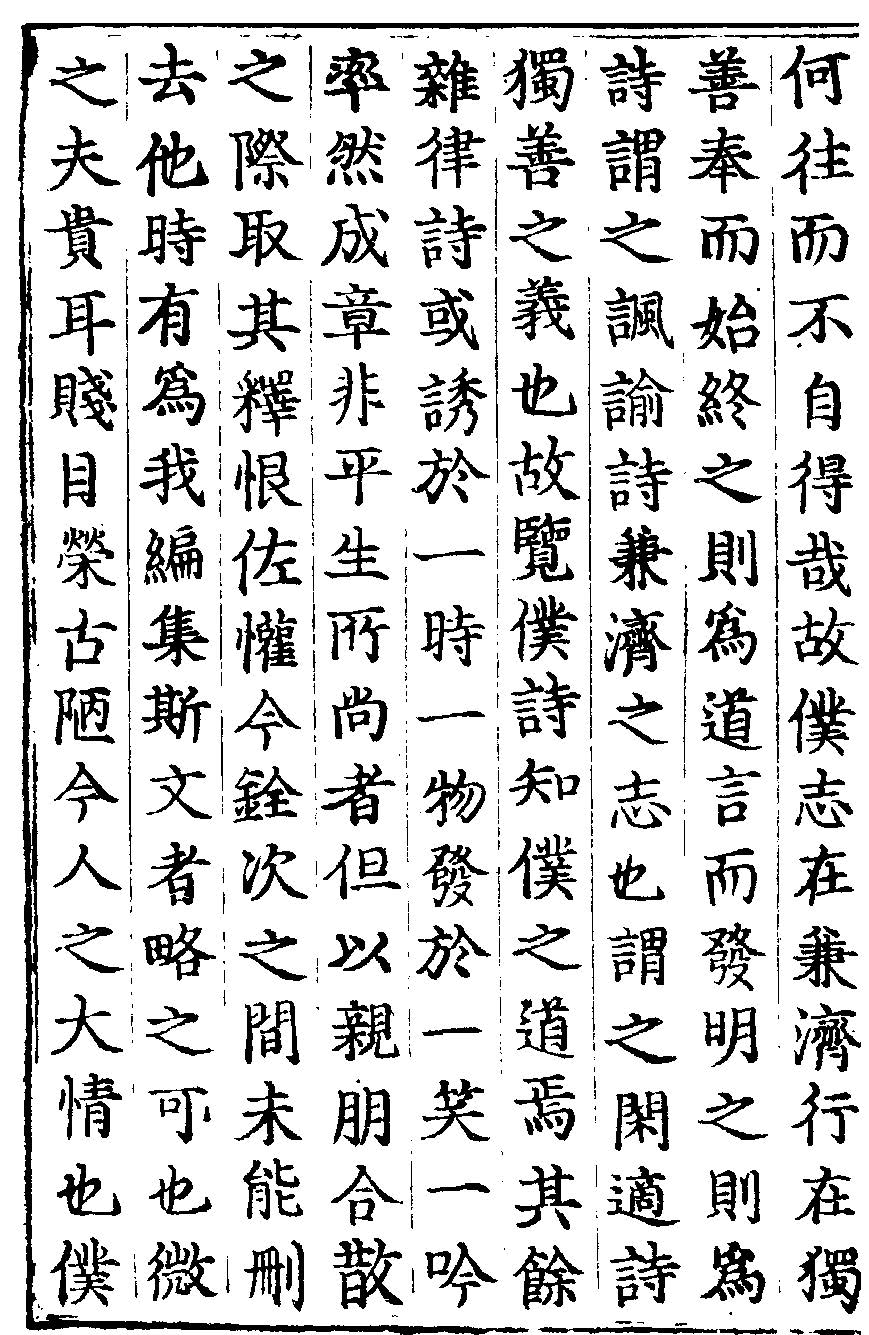 何往而不自得哉故僕志在兼濟行在獨
善奉而始終之則爲道言而發明之則爲
詩謂之諷諭詩兼濟之志也謂之閑適詩
獨善之義也故覽僕詩知僕之道焉其餘
雜律詩或誘於一時一物發於一笑一吟
率然成章非平生所尚者但以親朋合散
之際取其釋恨佐懽今銓次之間未能刪
去他時有爲我編集斯文者略之可也微
之夫貴耳賤目榮古陋今人之大情也僕